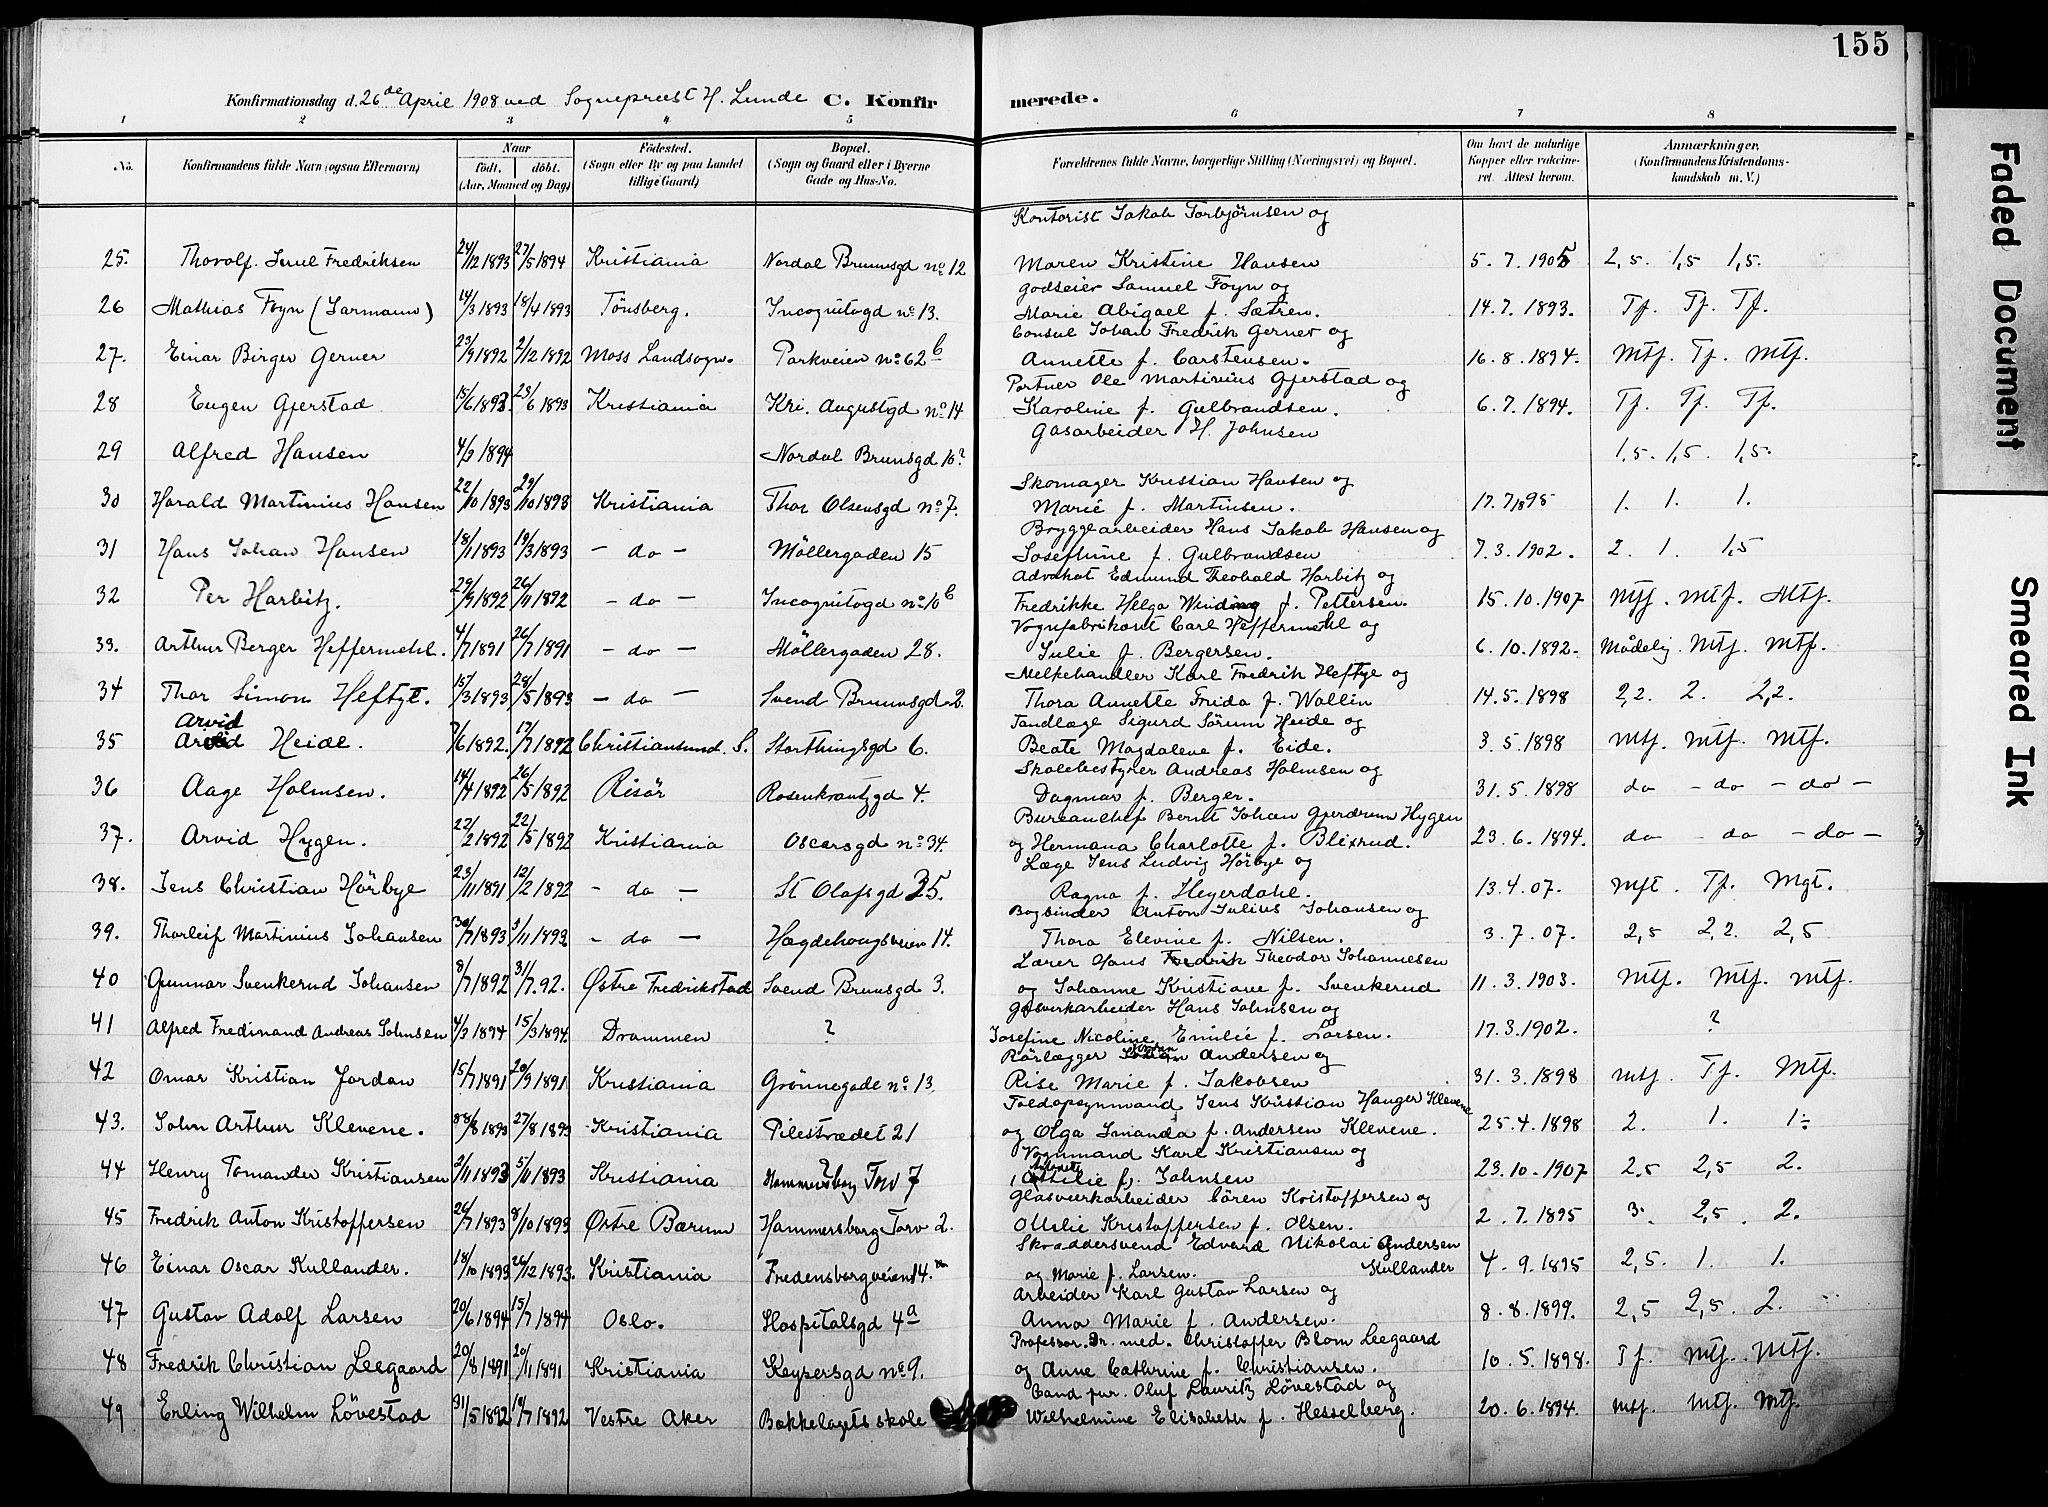 155
Konfirmationsdag d. 26de April 1908 ved Sogneprest H. Lunde C. Konfir merede.
1 2 3 4 5 6 7 8
No. Konfirmandens fulde Navn (ogsaa Efternavn) Naar født. døbt. (Aar, Maaned og Dag) Fødested. (Sogn eller By og paa Landet tillige Gaard) Bopæl. (Sogn og Gaard eller i Byerne Gade og Hus-No. Forældrenes fulde Navne, borgerlige Stilling (Næringsvei) og Bopæl. Om havt de naturlige Kopper eller vakcineret. Attest herom. Anmærkninger, (Konfirmandens Kristendomskundskab m. V.)
Kontorist Jakob Torbjørnsen og
25. Thorolf Fredriksen 24/12 1893 27/5 1894 Kristiania Nordal Brunnsgd no 12 Maren Kristine Hansen 5. 7. 1905 2,5. 1,5 1,5.
Godseier Samuel Foyn og
26 Mathias Foyn (Sarmann) 14/3 1893 18/4 1893 Tönsberg. Incognitogd no 13. Marie Abigael f. Sætren. 14. 7. 1893. Tf. Tf. Tf.
Consul Johan Fredrik Gerner og
27. Einar Birger Gerner 23/9 1892 2/12 1892 Moss Landsogn. Parkveien no 62 b Annette f. Carstensen. 16. 8. 1894. Mtf. Tf. Mtf.
Portner Ole Martinius Gjerstad og
28 Eugen Gjerstad 15/6 1893. 23/6 1893 Kristiania Kri. Augustgd no 14 Karoline f. Gulbrandsen. 6. 7. 1894. Tf. Tf. Tf.
Gasarbeider H. Johnsen
29 Alfred Hansen 4/3 1894 Nordal Brunsgd 10? 1,5. 1,5. 1,5.
Skomager Kristian Hansen og
30 Harald Martinius Hansen 22/10 1893 29/10 1893 Kristiania Thor Olsensgd no 7. Marie f. Martinsen. 17. 7 1895 1. 1. 1.
Bryggearbeider Hans Jakob Hansen og
31 Hans Johan Hansen 18/1 1893 19/3 1893 – do – Möllergaden 15 Josephine f. Gulbrandsen 7. 3. 1902. 2. 1. 1,5
Advokat Edmund Theobald Harbitz og
32 Per Harbitz. 29/9 1892 26/11 1892 – do – Incognitogd no 10 b Fredrikke Helga Winding f. Pettersen. 15. 10. 1907 Mtf. Mtf. Mtf.
Vognfabrikant Carl Heffermehl og
33. Arthur Berger Heffermehl. 4/7 1891 26/7 1891 – do – Möllergaden 28. Julie f. Bergersen. 6. 10. 1892. Mådelig. Mtf. Mtf.
Melkehandler Karl Fredrik Heftye og
34 Thor Simon Heftye. 15/3 1893 28/5 1893 – do – Svend Brunnsgd 2. Thora Annette Frida f. Wallin 14. 5. 1898 2,2. 2. 2,2.
Arvid Tandlæge Sigurd Sörum Heide og
35 Heide. 7/6 1892. 17/7 1892 Christiansund. S. Storthingsgd 6. Beate Magdalene f. Eide. 3. 5. 1898 Mtf. Mtf. Mtf.
Skolebestyrer Andreas Holmsen og
36 Aage Holmsen. 14/4 1892 26/5 1892 Risör Rosenkrantzgd 4. Dagmar f. Berger. 31. 5. 1898 do – do – do –
Bureauchef Bernt Johan Gjerdrum Hygen
37. Arvid Hygen. 22/2 1892 22/5 1892 Kristiania Oscarsgd no 34. og Hermana Charlotte f. Blixrud. 23. 6. 1894. do – do – do –
Læge Jens Ludvig Hörbye og
38. Jens Christian Hörbye 23/11 1891 12/2 1892 – do – St Olafsgd 35. Ragna f. Heyerdahl. 13. 4. 07. Mgt. Tf. Mgt.
Bogbinder Anton Julius Johansen og
39. Thorleif Martinius Johansen 30/7 1893 3/11 1893. – do – Hægdehougsveien 14. Thora Elevine f. Nilsen. 3. 7. 07. 2,5 2,2. 2,5
Lærer Hans Fredrik Theodor Johannesen
40 Gunnar Svenkerud Johansen 8/7 1892 31/7. 92. Østre Fredrikstad Svend Brunsgd 3. og Johanne Kristiane f. Svenkerud 11. 3. 1903. Mtf. Mtf. Mtf.
Gasverkarbeider Hans Johnsen og
41 Alfred Fredinand Andreas Johnsen 4/3 1894 15/3 1894. Drammen ? Josefine Nicoline Emilie f. Larsen. 17. 3. 1902. ?
Rörlægger Andersen og
42 Omar Kristian Jordan 15/7 1891 20/9 1891 Kristiania Grönnegade no 13 Rise Marie f. Jakobsen 31. 3. 1898 Mtf. Tf. Mtf.
Toldopsynmand Jens Kristian Hanger Klevene
43. John Arthur Klevene. 8/8 1893 27/8 1893 Kristiania Pilestrædet 21 og Olga Imanda f. Andersen Klevene. 25. 4. 1898 2. 1. 1÷
Vognmand Karl Kristiansen og
44 Henry Tomander Kristiansen 2/11 1893 5/11 1893 Kristiania Hammersborg Torv 7 f. Johnsen 23. 10. 1907 2,5 2,5 2.
Glasverkarbeider Sören Kristoffersen og
45 Fredrik Anton Kristoffersen 26/7 1893 8/10 1893 Østre Bærum Hammersborg Torv 2. Ottilie Kristoffersen f. Olsen. 2. 7. 1895 3. 2,5. 2.
Skræddersvend Edvard Nikolai Andersen
46 Einar Oscar Kullander. 18/10 1893 26/12 1893. Kristiania Fredensborgveien 14. og Marie f. Larsen. Kullander 4. 9. 1895 2,5. 1. 1.
Arbeider Karl Gustav Larsen og
47 Gustav Adolf Larsen 20/6 1894 15/7 1894 Oslo. Hospitalsgd 4a Anna Marie f. Andersen. 8. 8. 1899. 2,5 2,5. 2.
Professor. Dr. med. Christoffer Blom Leegaard
48 Fredrik Christian Leegaard 20/8 1891 20/11 1891 Kristiania Keysersgd no 9. og Anne Cathrine f. Christiansen. 10. 5. 1898. Tf. Mtf. Mtf.
Cand fur. Oluf Lauritz Lövestad og
49 Erling Wilhelm Lövestad 31/5 1892 19/7 1892 Vestre Aker Bækkelagets skole Wilhelmine Elisabeth f. Hesselberg. 20. 6. 1894. Mtf. Mtf. Mtf.
Faded Document
Smeared Ink